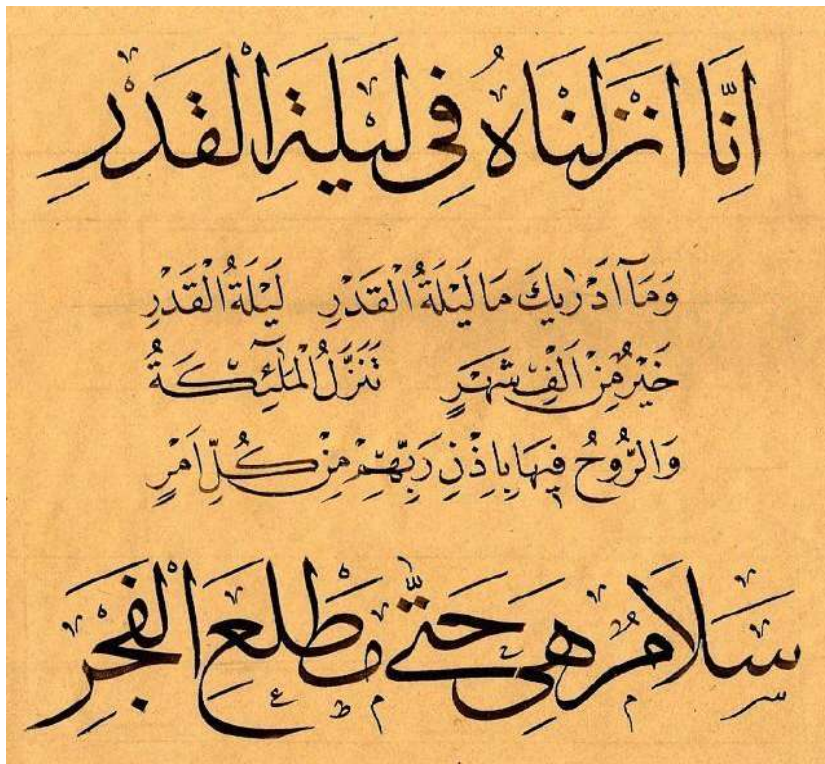 اِنَّا اَنْزَلْنَاهُ فِي لَيْلَةِ الْقَدْرِ
وَمَآ اَدْرٰيكَ مَا لَيْلَةُ الْقَدْرِ لَيْلَةُ الْقَدْرِ
خَيْرٌ مِنْ اَلْفِ شَهْرٍ تَنَزَّلُ الْمَلٰٓئِكَةُ
وَالرُّوحُ فِيهَا بِاِذْنِ رَبِّهِمْ مِنْ كُلِّ اَمْرٍ
سَلَامٌ هِيَ حَتّٰى مَطْلَعِ الْفَجْرِ